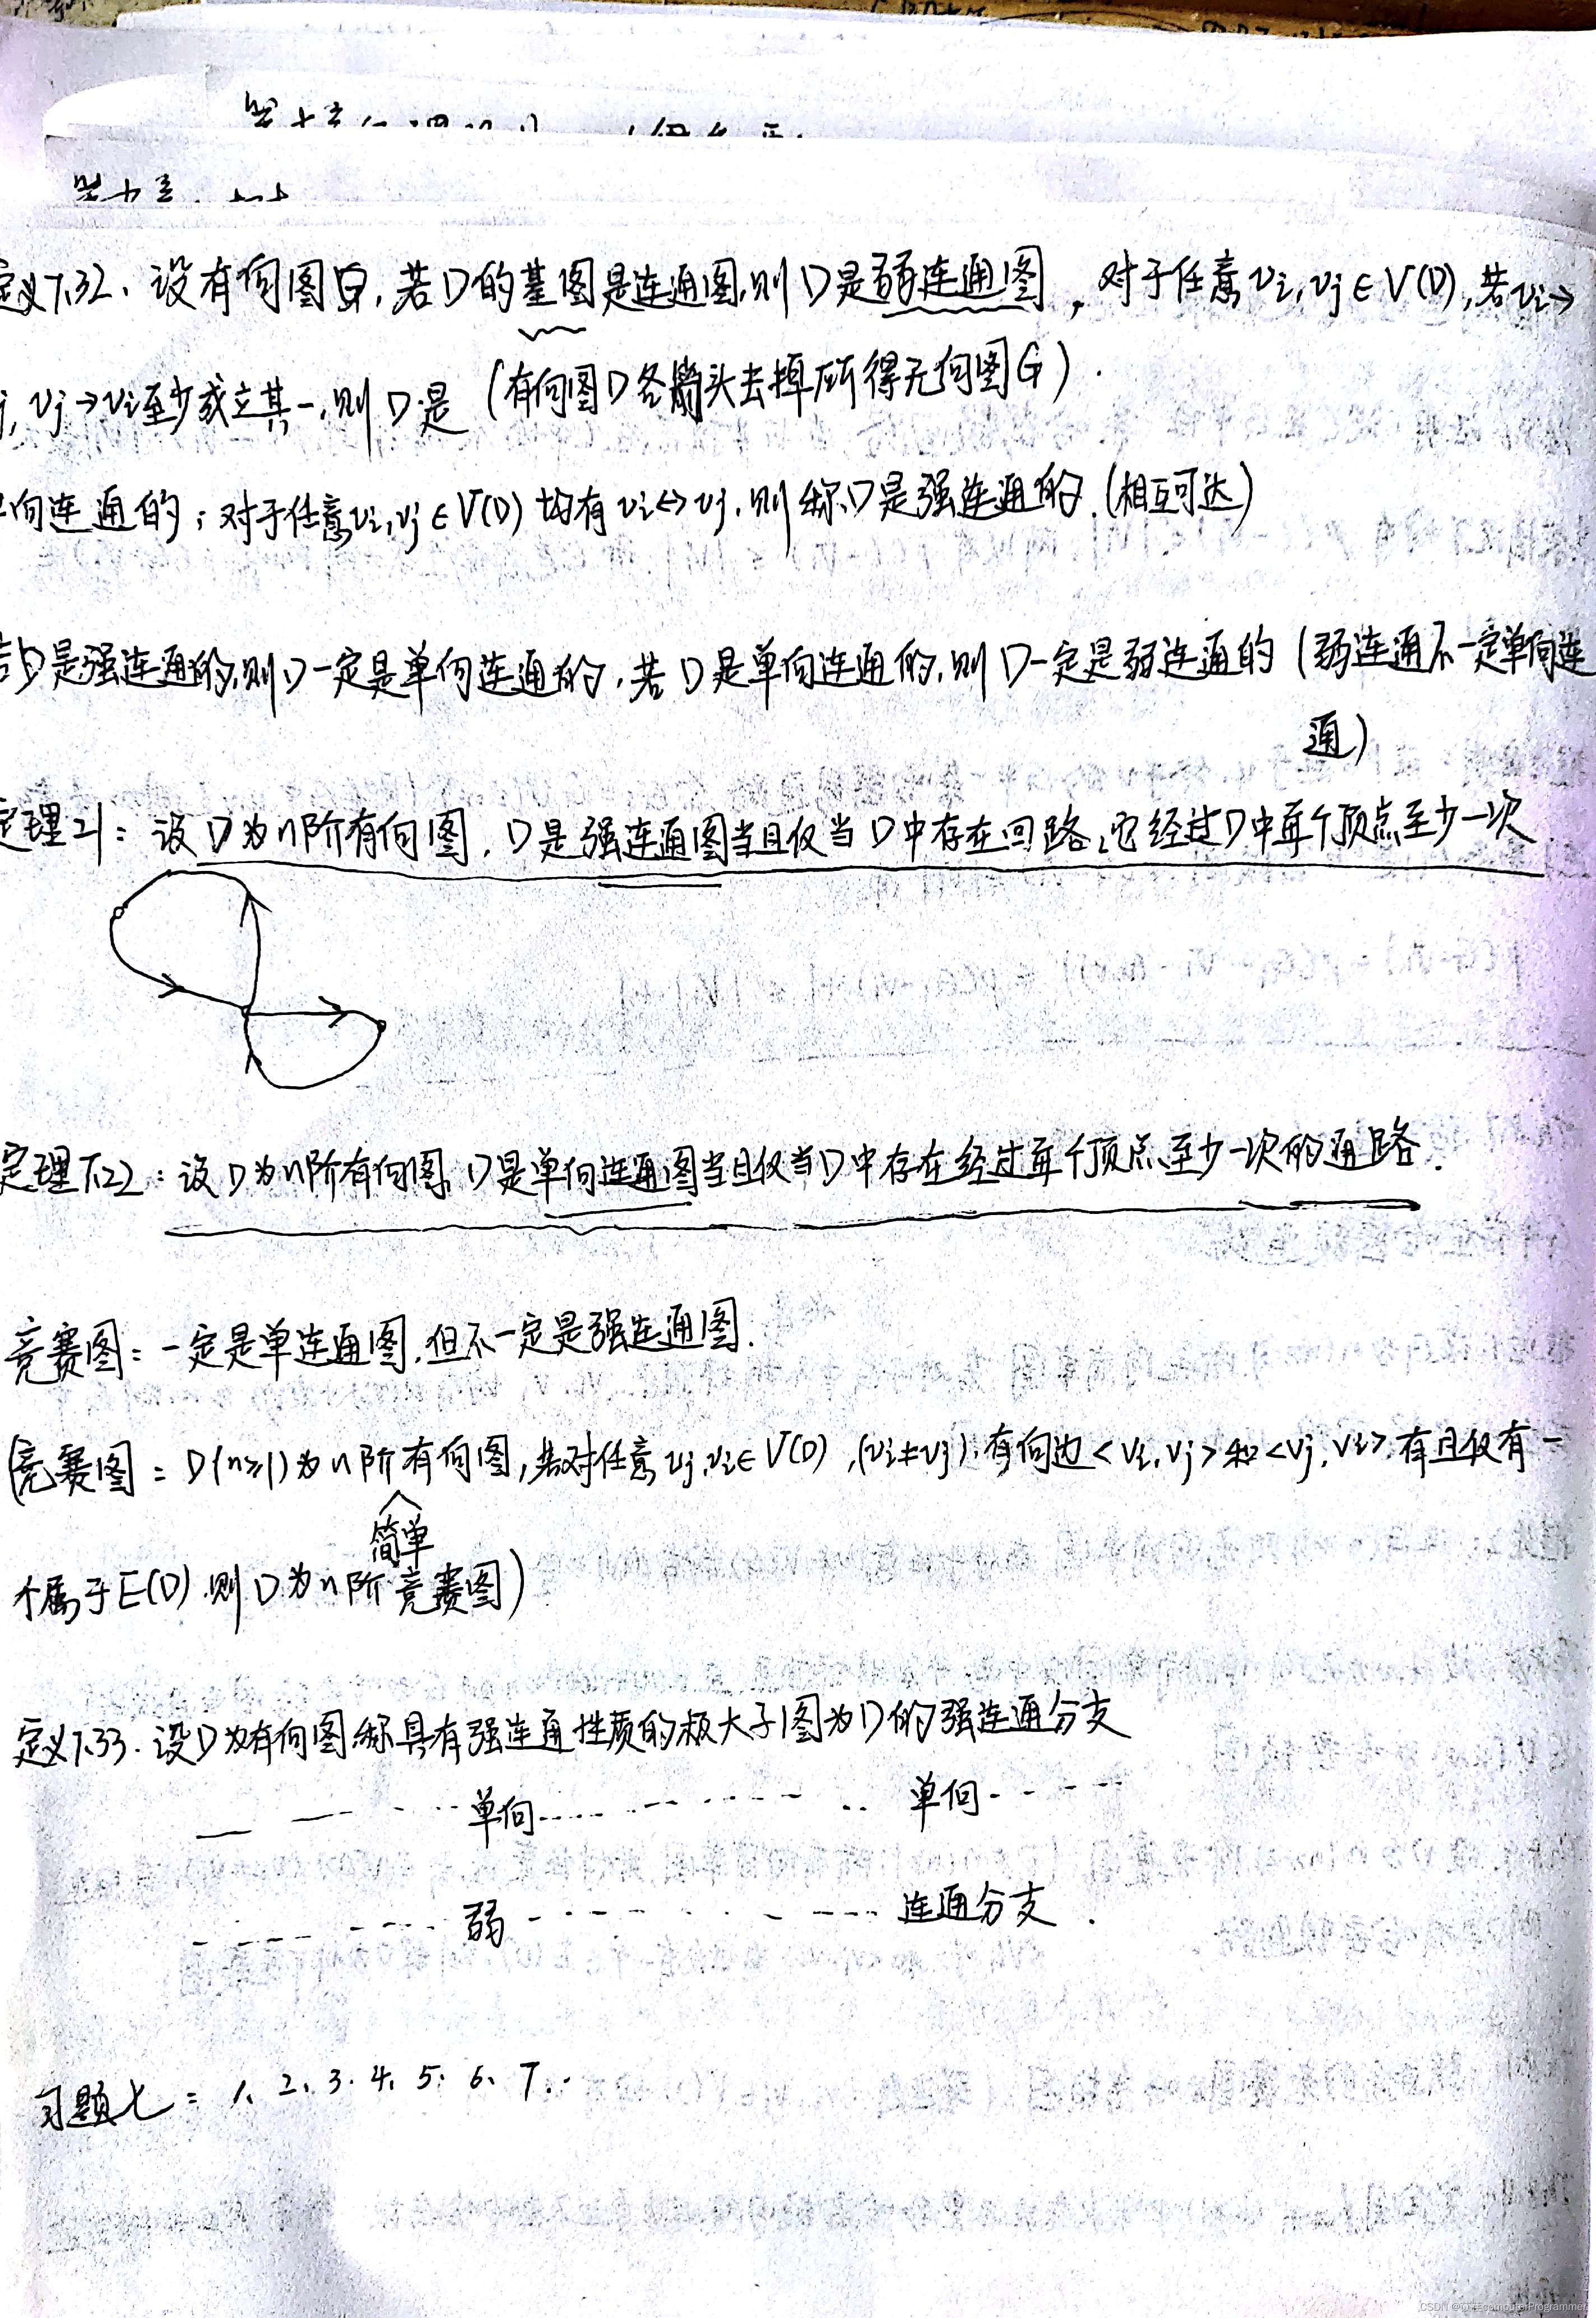 定义7.32、设有向图D,若D的基图是连通图,则D是弱连通图,对于任意vi,vj∈V(D),若vi→
j,vj→vi至少成立其一,则D是 (有向图D各箭头去掉所得无向图G).
向连通的;对于任意vi,vj∈V(D)均有vi↔vj,则称D是强连通的.(相互可达)
若D是强连通的,则D一定是单向连通的,若D是单向连通的,则D一定是弱连通的(弱连通不一定单向连
通)
定理21:设D为n阶有向图,D是强连通图当且仅当D中存在回路,它经过D中每个顶点至少一次
定理7.22:设D为n阶有向图,D是单向连通图当且仅当D中存在经过每个顶点至少一次的通路.
竞赛图:一定是单连通图,但不一定是强连通图.
(竞赛图:D(n≥1)为n阶有向图,若对任意vj,vi∈V(D),(vi≠vj),有向边<vi,vj>和<vj,vi>有且仅有一
简单
个属于E(D).则D为n阶竞赛图)
定义7.33.设D为有向图称具有强连通性质的极大子图为D的强连通分支
单向 单向
弱 连通分支.
习题七:1、2、3、4、5、6、7.
CSDN